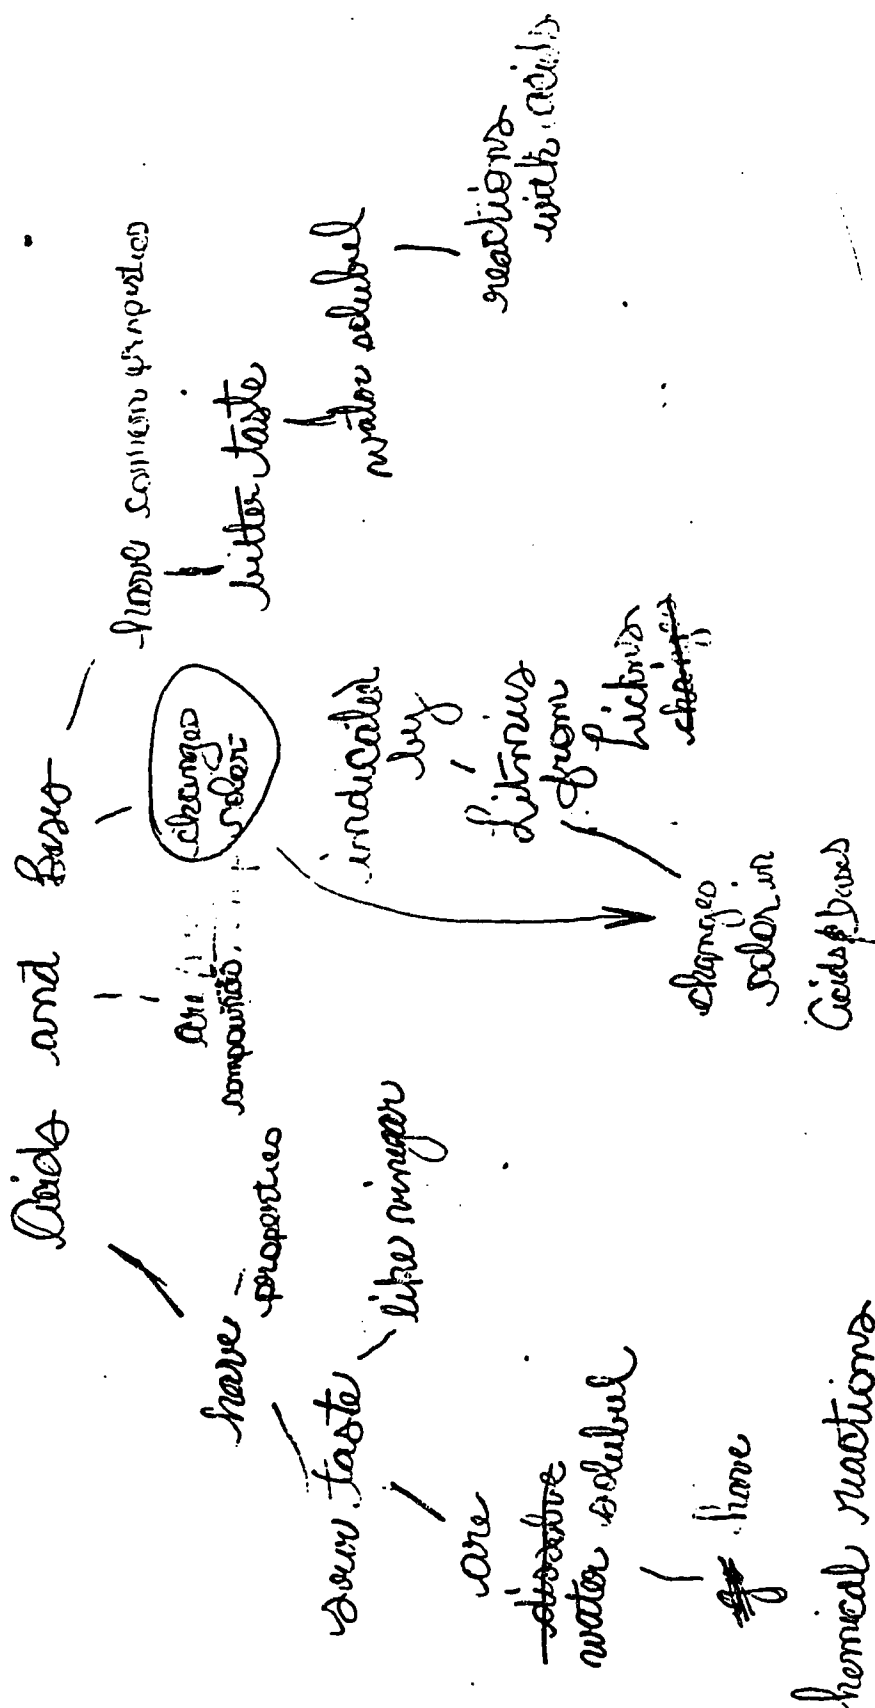 Acids and Bases
have
properties
sour taste
like vinegar
are
dissolve
water solubul
have
hemical reactions
are
compounds
changes
color
indicated
by
Litmus
from
Lichins
changes
color in
Acids & bases
have common properties
bitter taste
water solubul
reactions
with acids